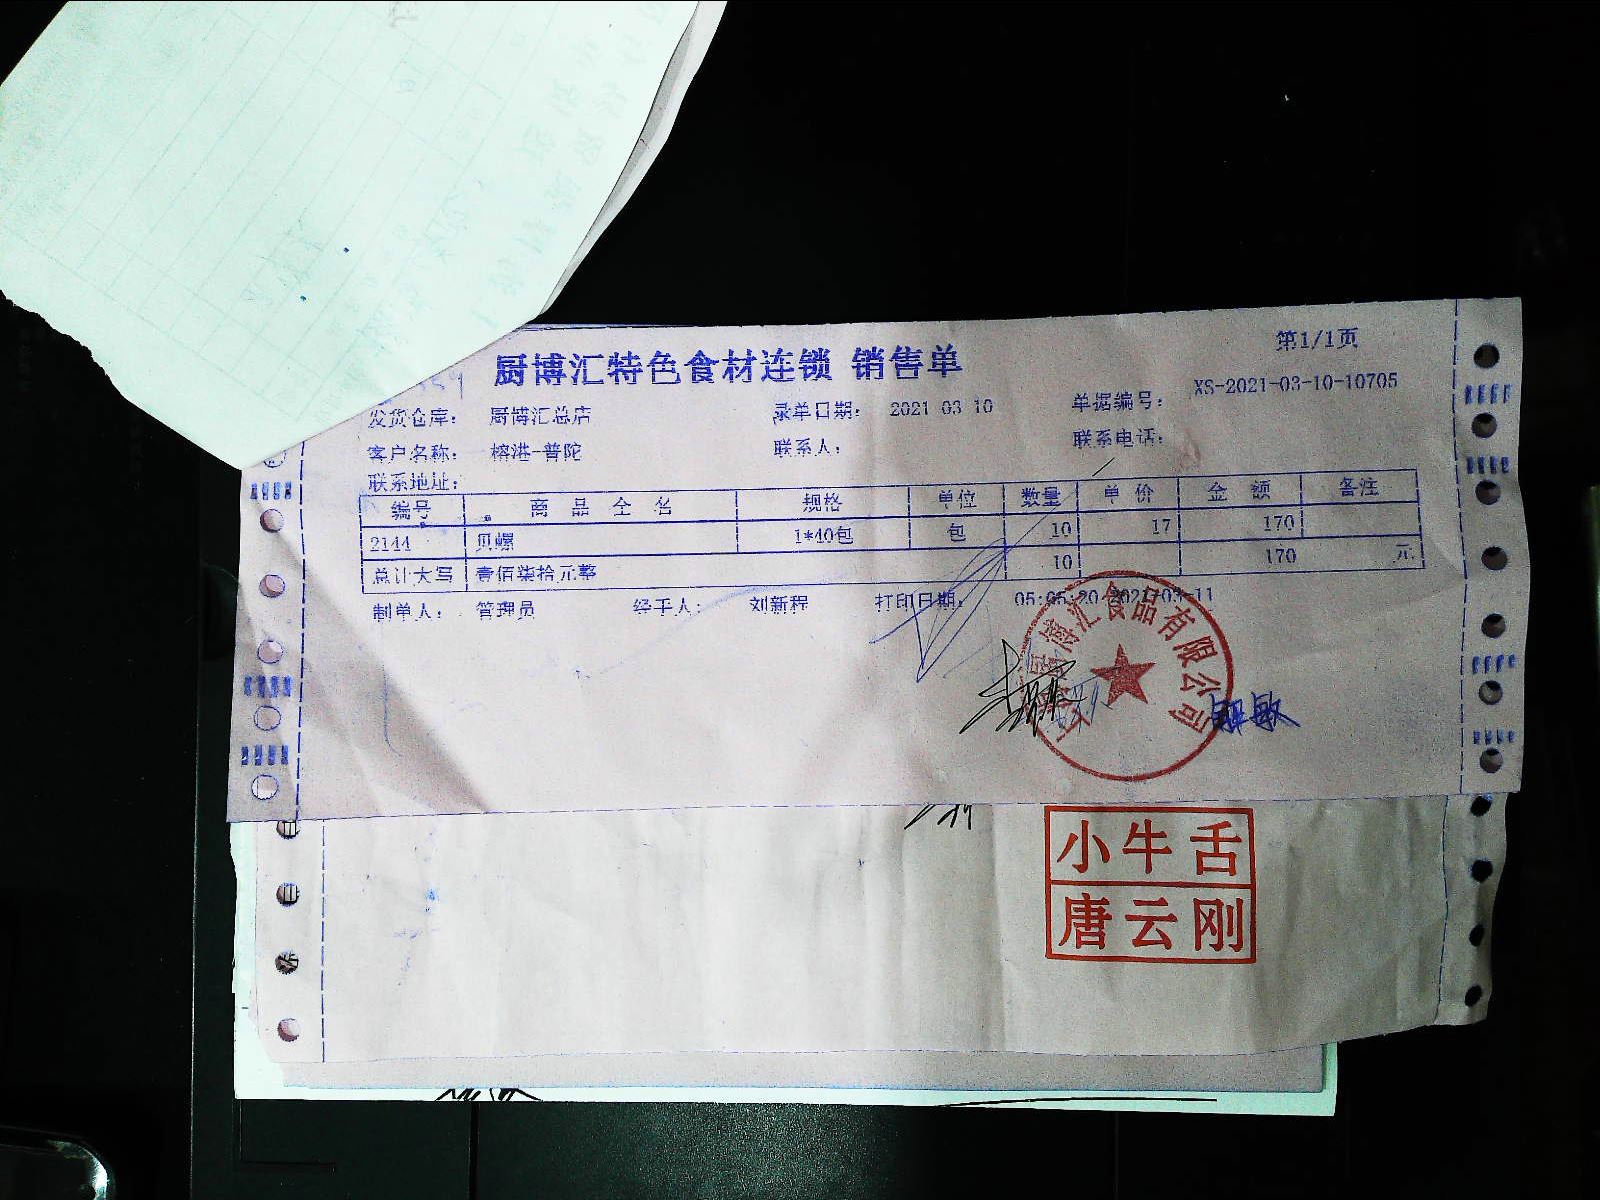 第1/1页
厨博汇特色食材连锁 销售单
发货仓库: 厨博汇总店 录单日期: 2021 03 10 单据编号: XS-2021-03-10-10705
客户名称: 榕港-普陀 联系人: 联系电话:
联系地址:
编号 商品全名 规格 单位 数量 单价 金额 备注
2144 贝螺 1*40包 包 10 17 170
总计大写 壹佰柒拾元整 10 170 元
制单人: 管理员 经手人: 刘新程 打印日期: 05:05:20 2021-03-11
厨博汇食品有限公司
小牛舌
唐云刚